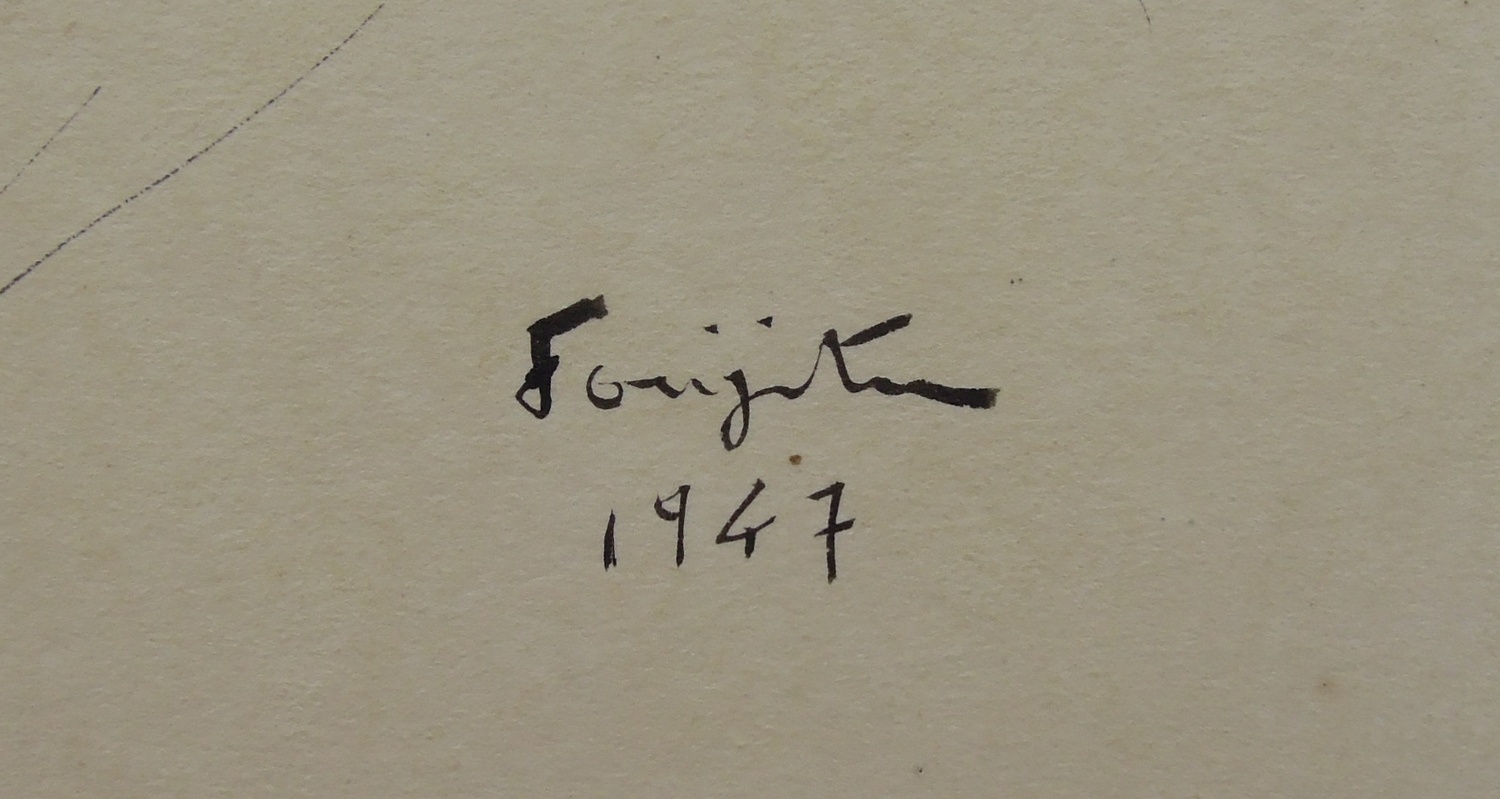 Foujita
1947